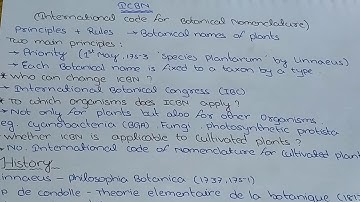 ICBN
(International code for Botanical Nomenclature)
Principles + Rules → Botanical names of plants
Two main principles :
→ Priority (1st May, 1753 'Species Plantarum' by Linnaeus)
→ Each Botanical name is fixed to a taxon by a type
* who can change ICBN ?
→ International Botanical Congress (IBC)
* To which organisms does ICBN apply ?
→ Not only for plants but also for other organisms
eg. Cyanobacteria (BGA), Fungi, photosynthetic protista
* whether ICBN is applicable to cultivated plants ?
→ NO. International Code of Nomenclature for cultivated plan
History
innaeus – philosophia Botanica (1737, 1751)
P. de condolle – Theorie elementaire de la botanique (181